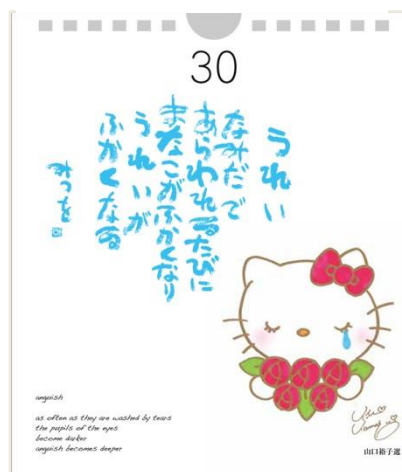 30
うれい
なみだで
あらわれるたびに
まなこがふかくなり
うれいが
ふかくなる
みつを
anguish
as often as they are washed by tears
the pupils of the eyes
become darker
anguish becomes deeper
山口裕子選